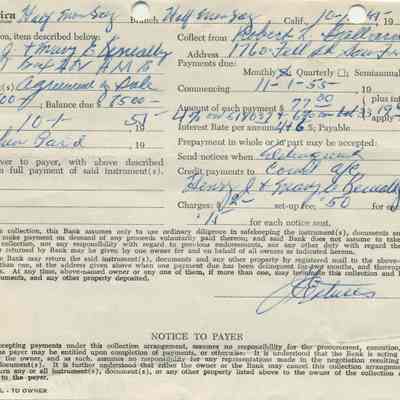 rica Half Moon Bay Branch Half Moon Bay Calif., 10-1 19 55
on, item described below: Collect from Robert L.
J & Mary E Address 1760 Fell St San
Box 204 H.M.B. Payments due:
(s) Agreement of Sale Monthly Quarterly Semiannual
Commencing 11-1-55
00 ; Balance due $ 8500 - Amount of each payment $ 77.00 (plus inte
10-1 19 55 4% on 5180.37 & 6% on bal 33 19
until Paid Interest Rate per annum 4 & 6 %; Payable
Prepayment in whole or in part may be accepted:
ver to payer, with above described Send notices when
n full payment of said instrument(s). Credit payments to Coml a/c
Henry J. & Mary E.
Charges: $ 2 - set-up fee; 50 for ea
for each notice sent.
is collection, this Bank assumes only to use ordinary diligence in safekeeping the instrument, documents and
make payment on demand of any proceeds voluntarily paid therein; and said Bank does not assume to take
collection, nor any responsibility with regard to previous endorsements, nor any other duty with regard the
r returned by Bank may be given by one owner for and on behalf of all owners as indicated hereon.
e Bank may return the said instrument(s), documents and any other property by registered mail to the above-
than one, at the address given above when one payment due has been delinquent for two months, and thereup
s. At any time, above-named owner or any one of them, if more than one, may terminate this collection and
uments, and any other property deposited.
NOTICE TO PAYER
ccepting payments under this collection arrangement, assumes no responsibility for the procurement, execution,
he payer may be entitled upon completion of payments, or otherwise. It is understood that the Bank is acting
the owner, and as such, assumes no responsibility for any representations made in the negotiation resulting
document(s). It is further understood that either the owner or the Bank may cancel this collection arrangement
urn any or all instrument(s), document(s), or any other property listed above to the owner of the collection
to the payer.
- TO OWNER